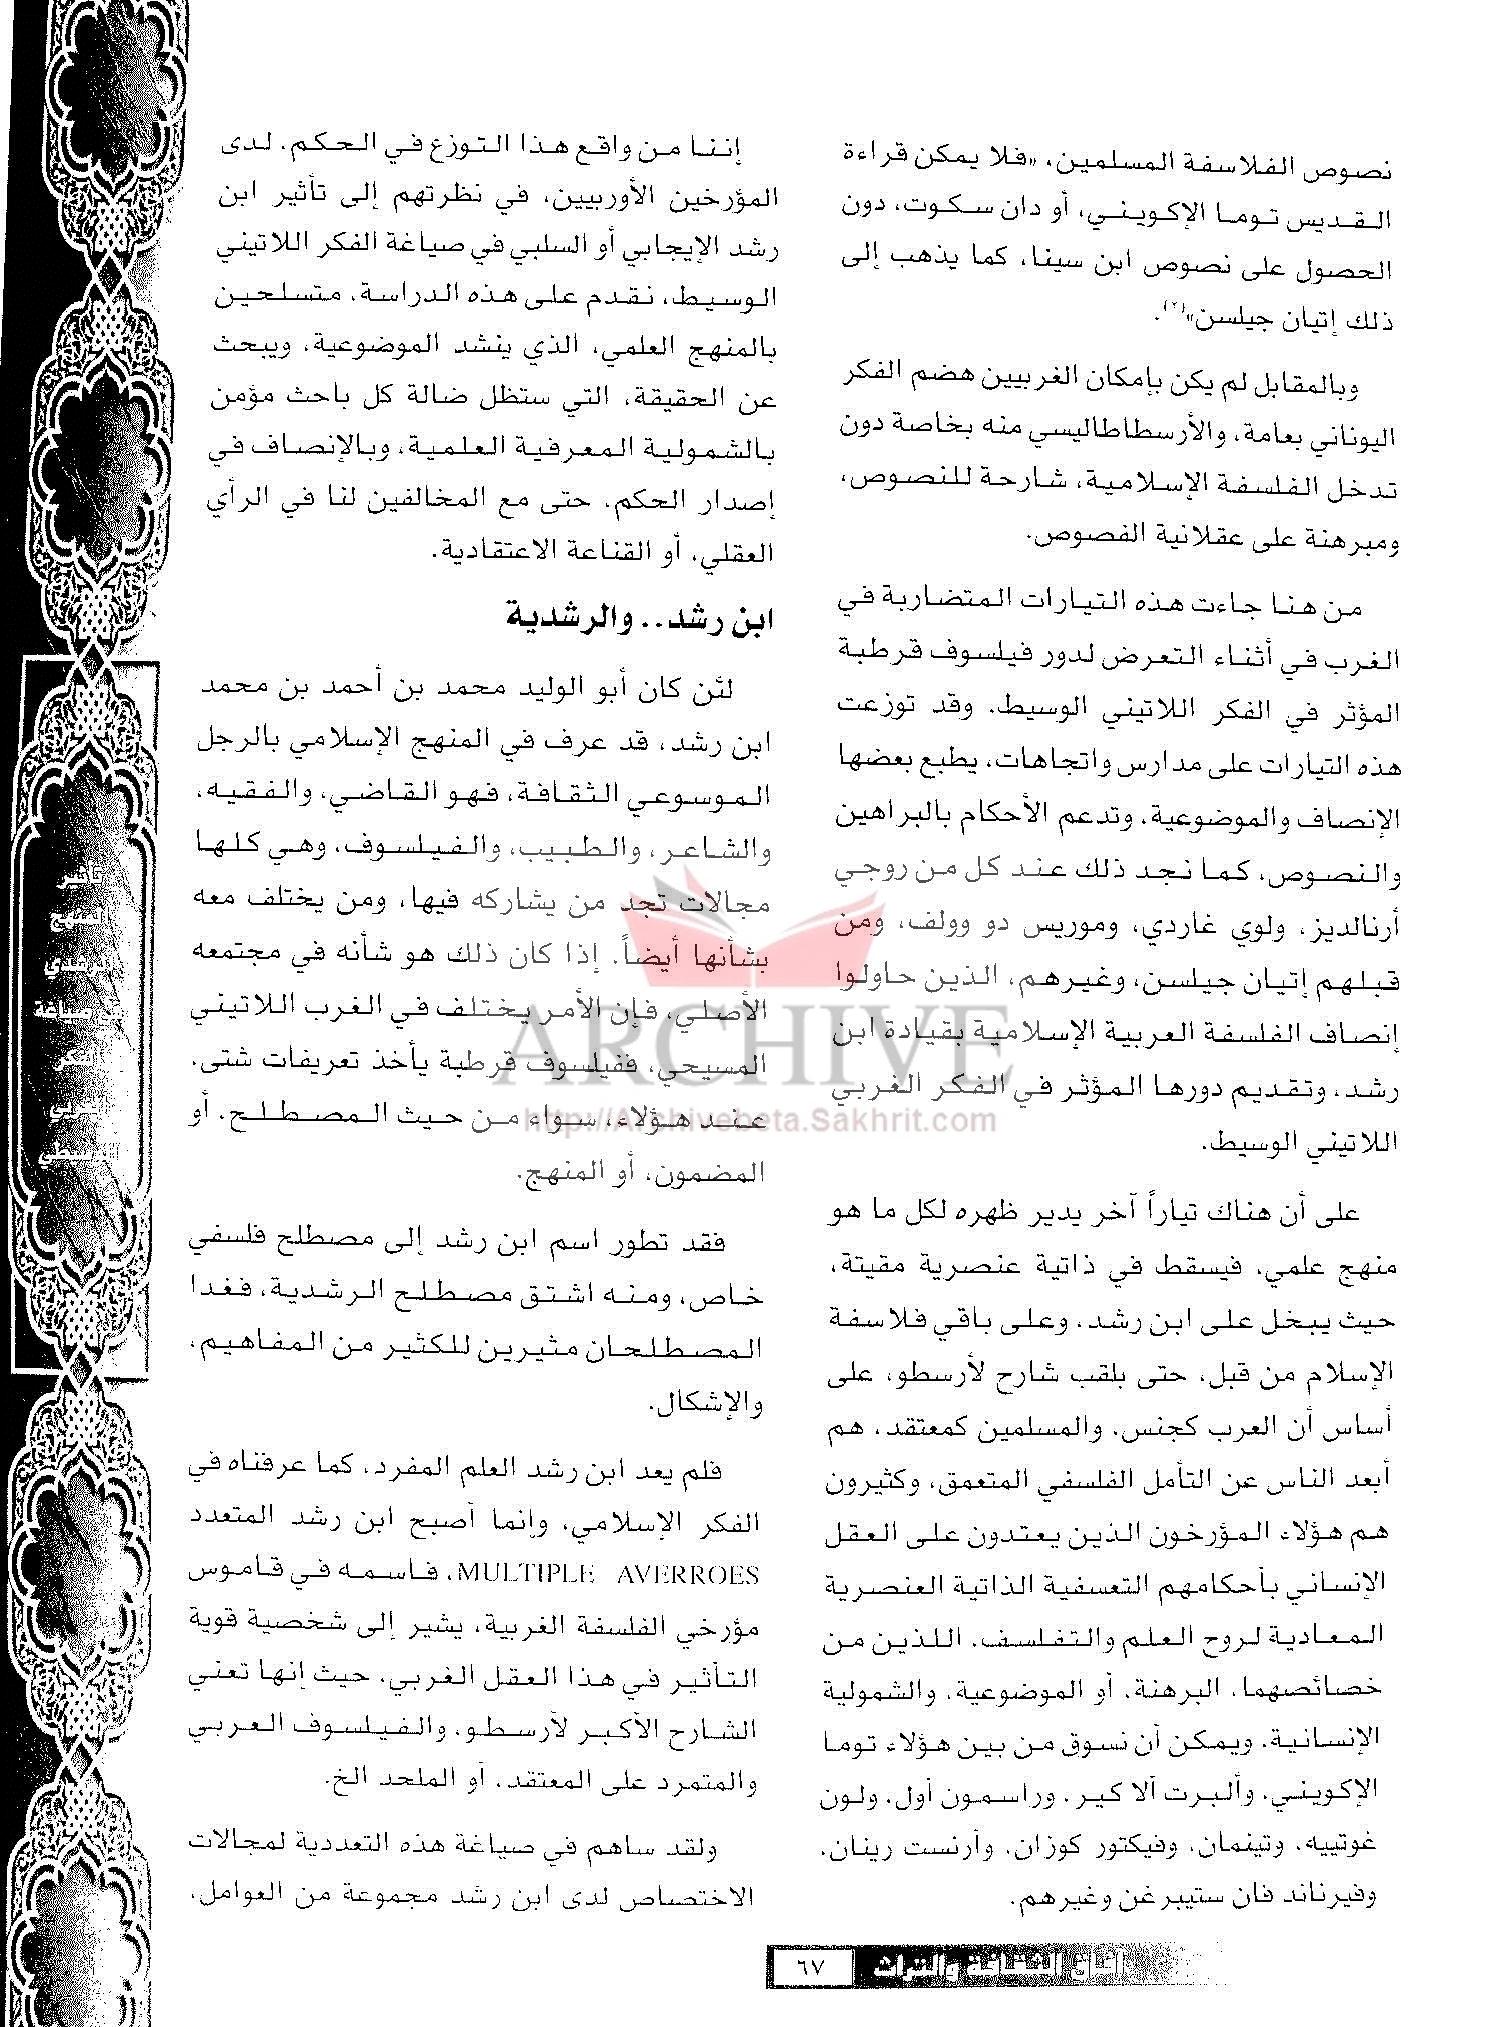 نصوص الفلاسفة المسلمين، «فلا يمكن قراءة
القديس توما الإكويني، أو دان سكوت، دون
الحصول على نصوص ابن سينا، كما يذهب إلى
ذلك إتيان جيلسن»(٢).
وبالمقابل لم يكن بإمكان الغربيين هضم الفكر
اليوناني بعامة، والأرسطاطاليسي منه بخاصة دون
تدخل الفلسفة الإسلامية، شارحة للنصوص،
ومبرهنة على عقلانية الفصوص.
من هنا جاءت هذه التيارات المتضاربة في
الغرب في أثناء التعرض لدور فيلسوف قرطبة
المؤثر في الفكر اللاتيني الوسيط. وقد توزعت
هذه التيارات على مدارس واتجاهات، يطبع بعضها
الإنصاف والموضوعية، وتدعم الأحكام بالبراهين
والنصوص، كما نجد ذلك عند كل من روجي
أرنالديز، ولوي غاردي، وموريس دو وولف، ومن
قبلهم إتيان جيلسن، وغيرهم، الذين حاولوا
إنصاف الفلسفة العربية الإسلامية بقيادة ابن
رشد، وتقديم دورها المؤثر في الفكر الغربي
اللاتيني الوسيط.
على أن هناك تياراً آخر يدير ظهره لكل ما هو
منهج علمي، فيسقط في ذاتية عنصرية مقيتة،
حيث يبخل على ابن رشد، وعلى باقي فلاسفة
الإسلام من قبل، حتى بلقب شارح لأرسطو، على
أساس أن العرب كجنس، والمسلمين كمعتقد، هم
أبعد الناس عن التأمل الفلسفي المتعمق، وكثيرون
هم هؤلاء المؤرخون الذين يعتدون على العقل
الإنساني بأحكامهم التعسفية الذاتية العنصرية
المعادية لروح العلم والتفلسف، اللذين من
خصائصهما، البرهنة، أو الموضوعية، والشمولية
الإنسانية. ويمكن أن نسوق من بين هؤلاء توما
الإكويني، وألبرت ألا كير، وراسمون أول، ولون
غوتييه، وتينمان، وفيكتور كوزان، وأرنست رينان،
وفيرناند فان ستيبرغن وغيرهم.
إننا من واقع هذا التوزع في الحكم، لدى
المؤرخين الأوربيين، في نظرتهم إلى تأثير ابن
رشد الإيجابي أو السلبي في صياغة الفكر اللاتيني
الوسيط، نقدم على هذه الدراسة، متسلحين
بالمنهج العلمي، الذي ينشد الموضوعية، ويبحث
عن الحقيقة، التي ستظل ضالة كل باحث مؤمن
بالشمولية المعرفية العلمية، وبالإنصاف في
إصدار الحكم، حتى مع المخالفين لنا في الرأي
العقلي، أو القناعة الاعتقادية.
ابن رشد.. والرشدية
لئن كان أبو الوليد محمد بن أحمد بن محمد
ابن رشد، قد عرف في المنهج الإسلامي بالرجل
الموسوعي الثقافة، فهو القاضي، والفقيه،
والشاعر، والطبيب، والفيلسوف، وهي كلها
مجالات تجد من يشاركه فيها، ومن يختلف معه
بشأنها أيضاً. إذا كان ذلك هو شأنه في مجتمعه
الأصلي، فإن الأمر يختلف في الغرب اللاتيني
المسيحي، ففيلسوف قرطبة يأخذ تعريفات شتى،
عند هؤلاء، سواء من حيث المصطلح، أو
المضمون، أو المنهج.
فقد تطور اسم ابن رشد إلى مصطلح فلسفي
خاص، ومنه اشتق مصطلح الرشدية، فغدا
المصطلحان مثيرين للكثير من المفاهيم،
والإشكال.
فلم يعد ابن رشد العلم المفرد، كما عرفناه في
الفكر الإسلامي، وإنما أصبح ابن رشد المتعدد
MULTIPLE AVERROES، فاسمه في قاموس
مؤرخي الفلسفة الغربية، يشير إلى شخصية قوية
التأثير في هذا العقل الغربي، حيث إنها تعني
الشارح الأكبر لأرسطو، والفيلسوف العربي
والمتمرد على المعتقد، أو الملحد الخ.
ولقد ساهم في صياغة هذه التعددية لمجالات
الاختصاص لدى ابن رشد مجموعة من العوامل،
ARCHIVE
http://Archivebeta.Sakhrit.com
آفاق الثقافة والتراث ٦٧